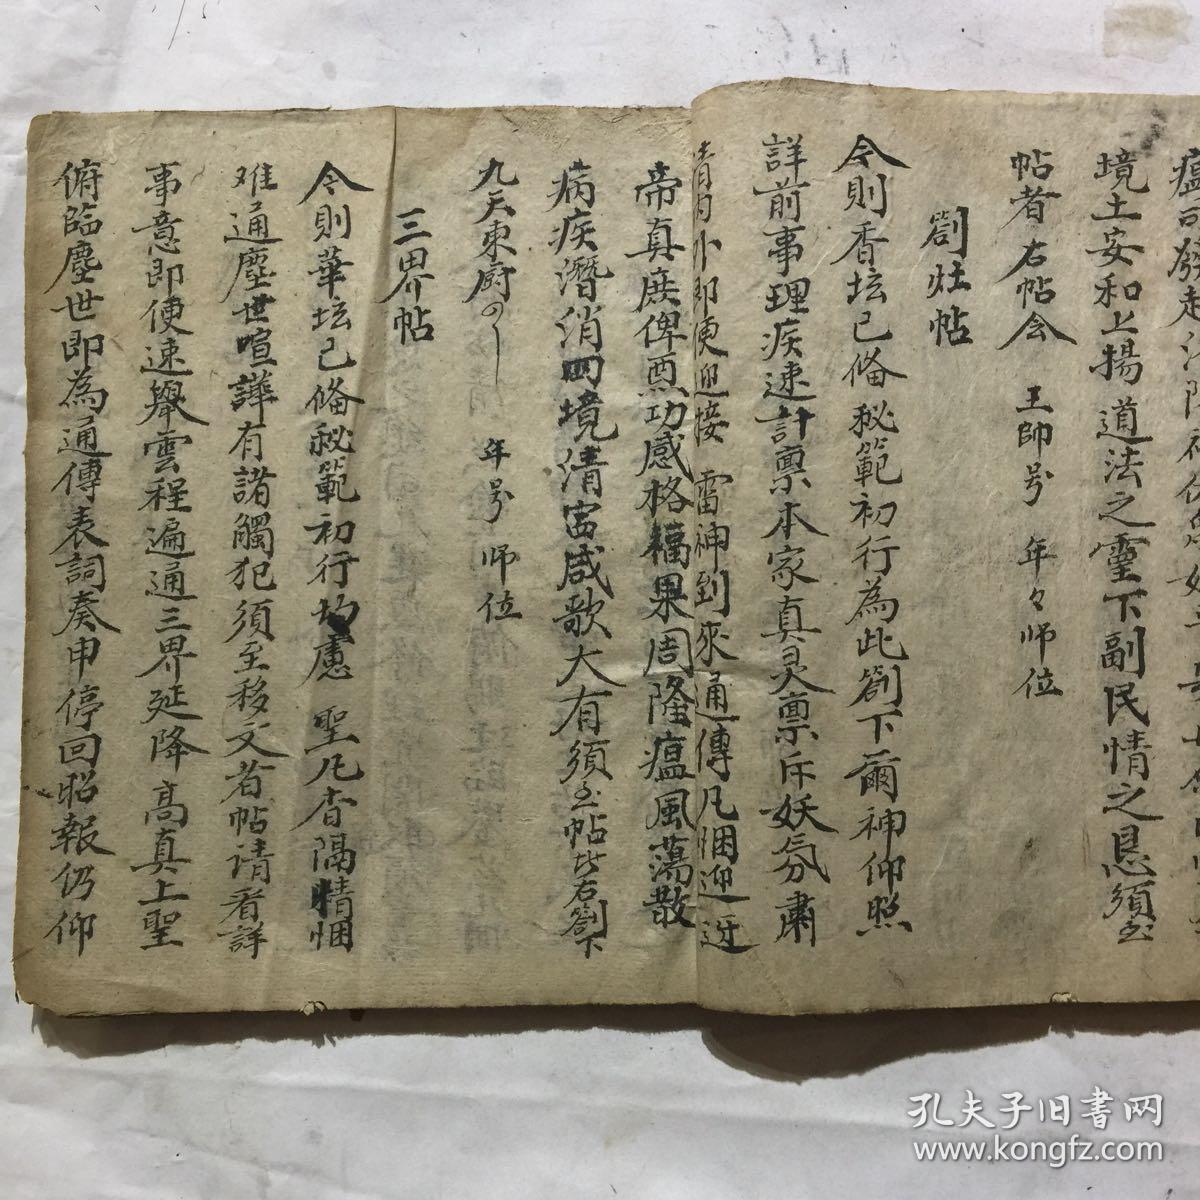 境土安和上揚道法之靈下副民情之恳須至
帖者右帖会 王帥号 年々师位
劄灶帖
今則香坛已俻秘範初行為此劄下爾神仰照
詳前事理疾速計禀本家真灵禀斥妖氛肅
清内外即便迎接雷神到來通傳凡悃迎迓
帝真庶俾熏功感格福果周隆瘟風蕩散
病疾潛消四境清寍咸歌大有須至帖者右劄下
九天東厨 年号 师位
三界帖
今則華坛已俻秘範初行切慮 聖凡杳隔情悃
难通塵世喧譁有諸觸犯須至移文者帖请看詳
事意即便速舉雲程遍通三界延降高真上聖
俯臨塵世即為通傳表詞奏申停回昭報仍仰
孔夫子旧书网
www.kongfz.com